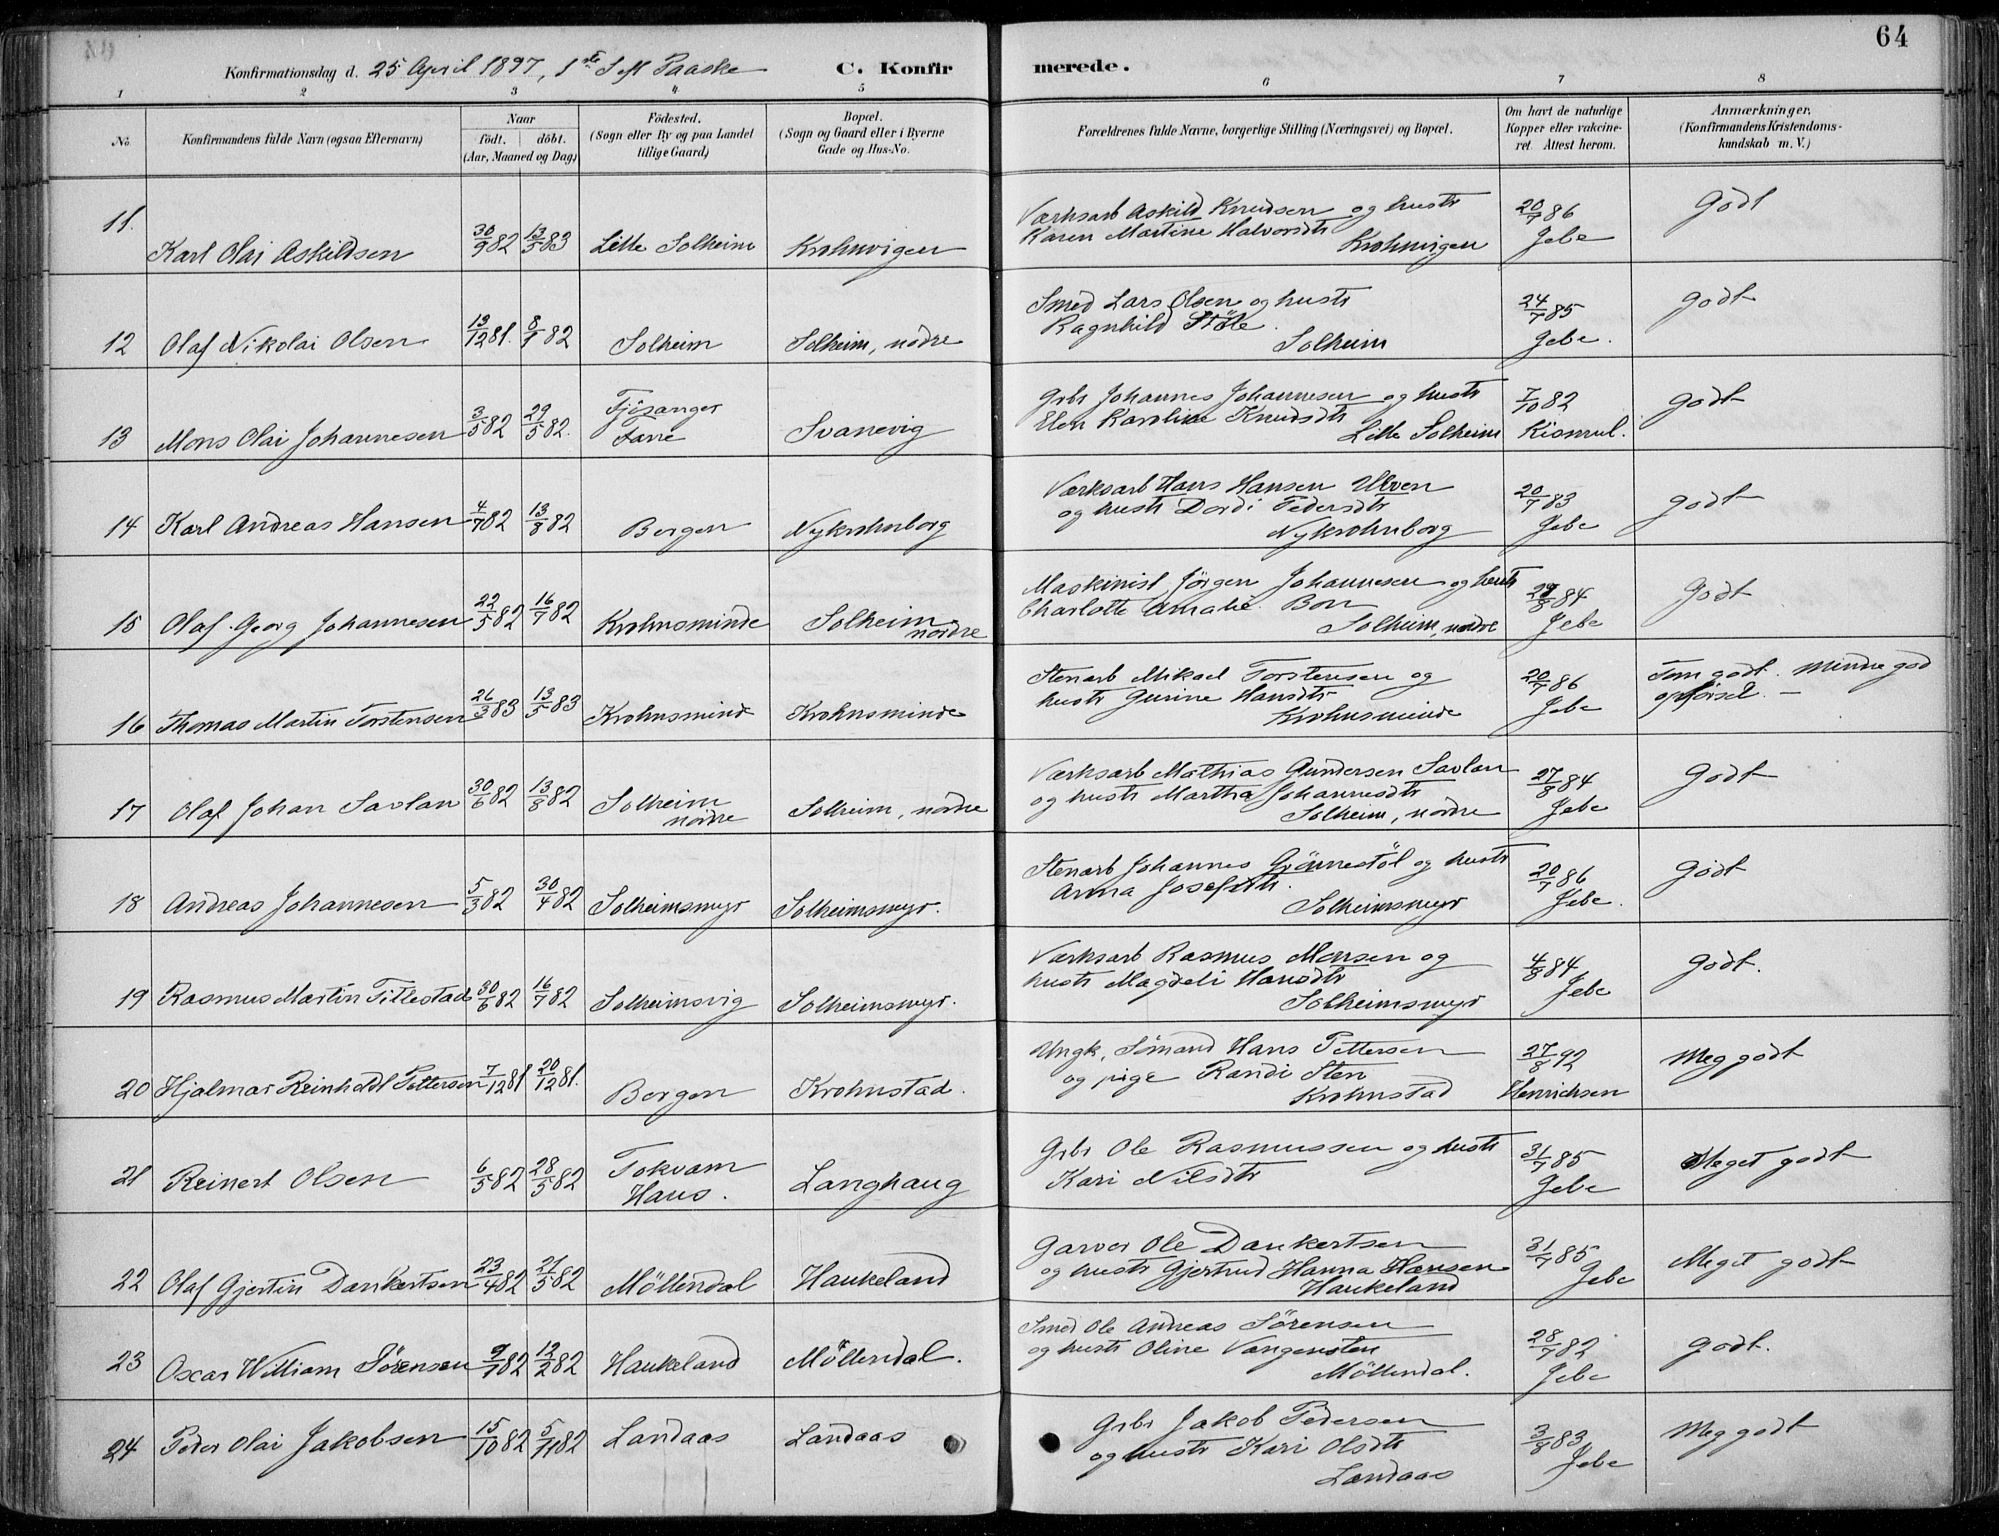 64
Konfirmationsdag d. 25 April 1897, 1ste S M Paaske C. Konfirmerede.
1 2 3 4 5 6 7 8
No. Konfirmandens fulde Navn (ogsaa Efternavn) Naar födt. döbt. (Aar, Maaned og Dag) Födested. (Sogn eller By og paa Landet tillige Gaard) Bopæl. (Sogn og Gaard eller i Byerne Gade og Hus-No. Forældrenes fulde Navne, borgerlige Stilling (Næringsvei) og Bopæl. Om havt de naturlige Kopper eller vakcineret. Attest herom. Anmærkninger. (Konfirmandens Kristendomskundskab m. V.)
11. Karl Olai Askildsen 30/9 82 13/5 83 Lille Solheim Krohnvigen
Værksarb Askild Knudsen og hustr
Karen Martine Halvorsdtr
Krohnvigen
20/7 86 Jebe Godt
12 Olaf Nikolai Olsen 13/12 81. 8/1 82 Solheim Solheim, nödre
Smed Lars Olsen og hustr
Ragnhild Stöle.
Solheim
24/7 85 Jebe. Godt
13 Mons Olai Johannesen 3/5 82 29/5 82. Fjösanger Fane Svanevig
Grbr Johannes Johannesen og hustr
Elen Karoline Knudsdtr
Lille Solheim
7/10 82 Kismul. Godt
14 Karl Andreas Hansen 4/7 82 13/8 82 Bergen Nykrohnborg
Værksarb Hans Hansen Ulven
og hustr Dordi Pedersdtr
Nykrohnborg
20/7 83 Jebe Godt
15 Olaf Georg Johannesen 22/5 82 16/7 82 Krohnsminde Solheim nordre
Maskinist Jörgen Johannesen og hustr
Charlotte Amalie
Solheim, nordre
84 Jebe Godt
16 Thomas Martin Torstensen 26/3 83 13/5 83 Krohnsminde Krohnsminde
Stenarb Mikael Torstensen og
hustr Gurine Hansdtr
Krohnsminde
20/7 86 Jebe Tem godt. Mindre god
opförsel. —
17 Olaf Johan Savlan 30/6 82 13/8 82 Solheim nordre Solheim, nordre
Værksarb Mathias Gundersen Savlan
og hustr Martha Johannesdtr
Solheim, nordre
27/8 84 Jebe Godt
18 Andreas Johannesen 5/3 82 30/4 82 Solheimsmyr Solheimsmyr.
Stenarb Johannes Grönnestöl og hustr
Anna Josefsdtr.
Solheimsmyr
20/7 86 Jebe. Godt
19 Rasmus Martin Tillestad 30/6 82 16/7 82 Solheimsvig Solheimsmyr.
Værksarb Rasmus Monsen og
hustr Magdeli Hansdtr
Solheimsmyr
4/8 84 Jebe Godt.
20 Hjalmar Reinholdt Pettersen 7/12 81 20/12 81. Bergen Krohnstad.
Ungk, Sömand Hans Pettersen
og pige Randi Sten
Krohnstad
27/8 92 Henrichsen Meg godt
21 Reinert Olsen 6/5 82 28/5 82 Tokvam Haus. Langhaug
Grbr Ole Rasmussen og hustr
Kari Nilsdtr
31/7 85 Jebe Meget godt
22 Olaf Gjertin Dankertsen 23/4 82 21/5 82 Möllendal Haukeland
Garver Ole Dankertsen
og hustr Gjertrud Hanna Hansen
Haukeland
31/7 85 Jebe Meget godt
23 Oscar William Sörensen 9/1 82 12/2 82 Haukeland Möllendal.
Smed Ole Andreas Sörensen
og hustr Oline Vangensten
Möllendal.
28/7 82 Jebe Godt.
24 Peder Olai Jakobsen 15/10 82 5/11 82 Landaas Landaas
Grbr Jakob Pedersen
og hustr Kari Olsdtr
Landaas
3/8 83 Jebe Meg godt